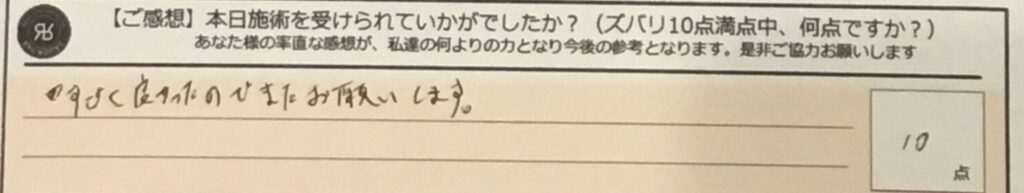 【ご感想】本日施術を受けられていかがでしたか？（ズバリ10点満点中、何点ですか？）
あなた様の率直な感想が、私達の何よりの力となり今後の参考となります。是非ご協力お願いします
すごく良かったのでまたお願いします。
10
点